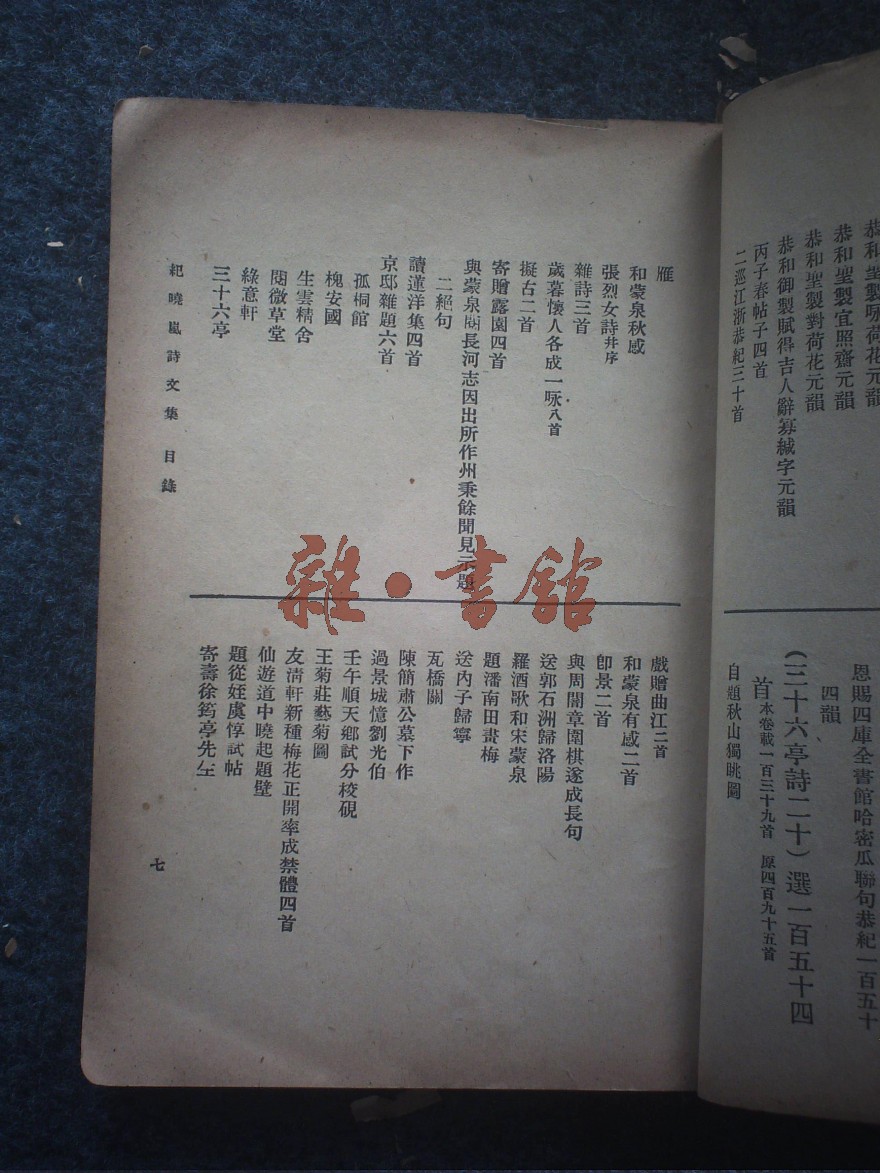 恭和聖製詠荷花元韻
恭和聖製宜照齋元韻
恭和聖製對荷花元韻
恭和御製賦得吉人辭寡緘字元韻
丙子春帖子四首
二巡江浙恭紀三十首
恩賜四庫全書館哈密瓜聯句恭紀一百五十
四韻
(三十六亭詩二十)選一百五十四
首本卷載一百三十九首 原四百九十五首
自題秋山獨眺圖
雁
和蒙泉秋感
張烈女詩并序
雜詩三首
歲暮懷人各成一咏八首
擬古二首
寄贈露園四首
與蒙泉閱長河志因出所作州乘餘聞見示題
二絕句
讀蓮洋集四首
京邸雜題六首
孤桐館
槐安國
生雲精舍
閱微草堂
綠意軒
三十六亭
戲贈曲江二首
和蒙泉有感二首
卽景二首
與周闇章圍棋遂成長句
送郭石洲歸洛陽
羅酒歌和宋蒙泉
題潘南田畫梅
送內子歸寧
瓦橋關
陳簡肅公墓下作
過景城憶劉光伯
壬午順天鄉試分校硯
王菊莊藝菊圖
友清軒新種梅花正開率成禁體四首
仙遊道中曉起題壁
題從姪虞惇試帖
寄壽徐筠亭先生
紀曉嵐詩文集 目錄
七
雜·書館